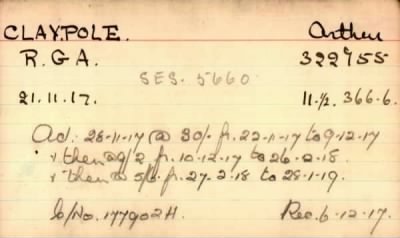 CLAYPOLE. Arthur
R.G.A. 322955
SES. 5660
21.11.17. 11-½. 366-6.
Ad: 28-11-17 @ 30/- fr. 22-11-17 to 9-12-17
" then @ 9/2 fr. 10-12-17 to 26-2-18.
" then @ 5/6 fr. 27-2-18 to 28-1-19.
C/No. 177902H. Rec. 6-12-17.